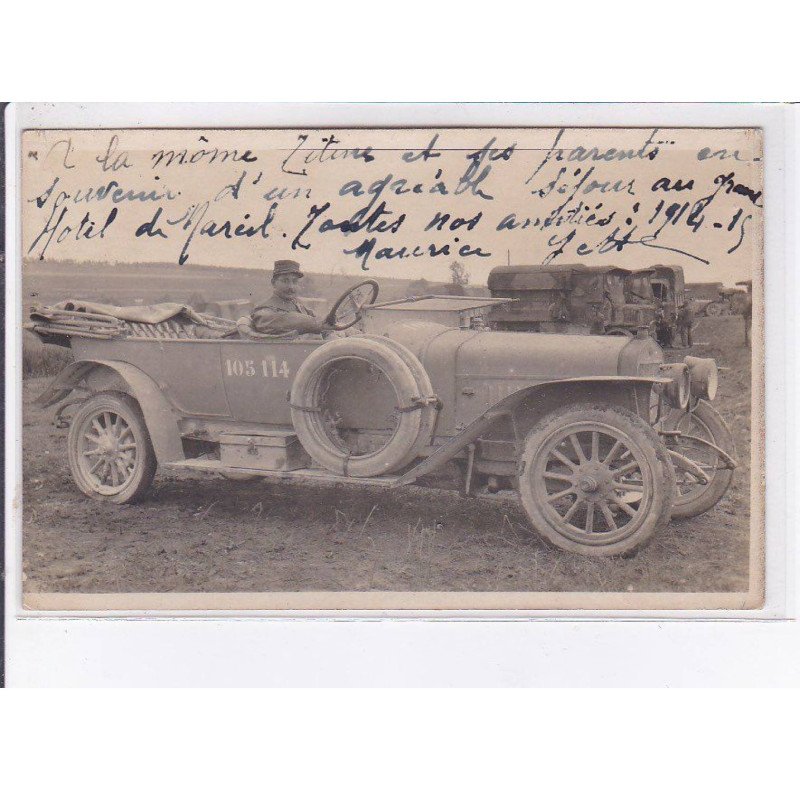 A la môme Titine et ses parents en
souvenir d'un agréable séjour au Grand
Hotel de Mareil. Toutes nos amitiés : 1914-15
Maurice
105 114